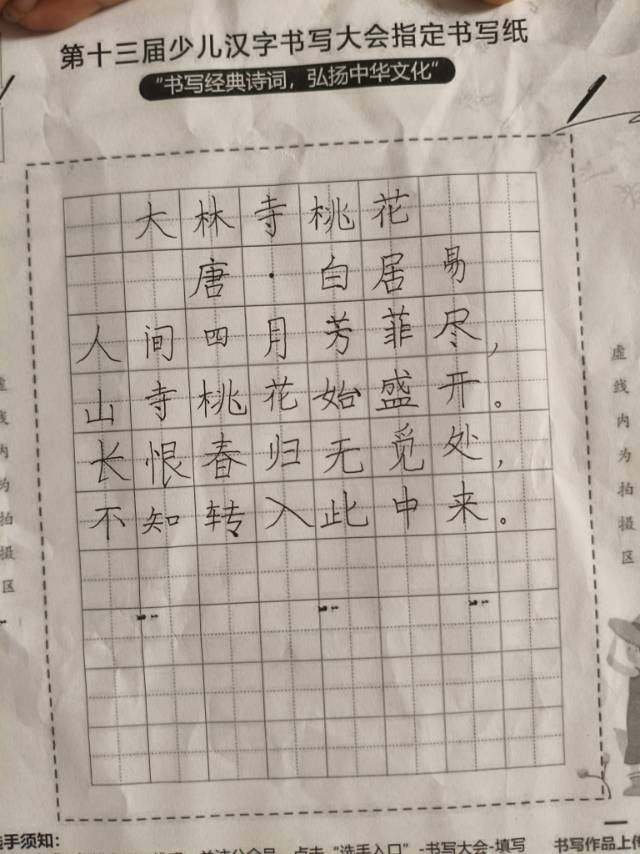 第十三届少儿汉字书写大会指定书写纸
“书写经典诗词，弘扬中华文化”
大林寺桃花
唐·白居易
人间四月芳菲尽，
山寺桃花始盛开。
长恨春归无觅处，
不知转入此中来。
虚线内为拍摄区
线内为拍摄区
选手须知：
点击“选手入口”-书写大会-填写
书写作品上传